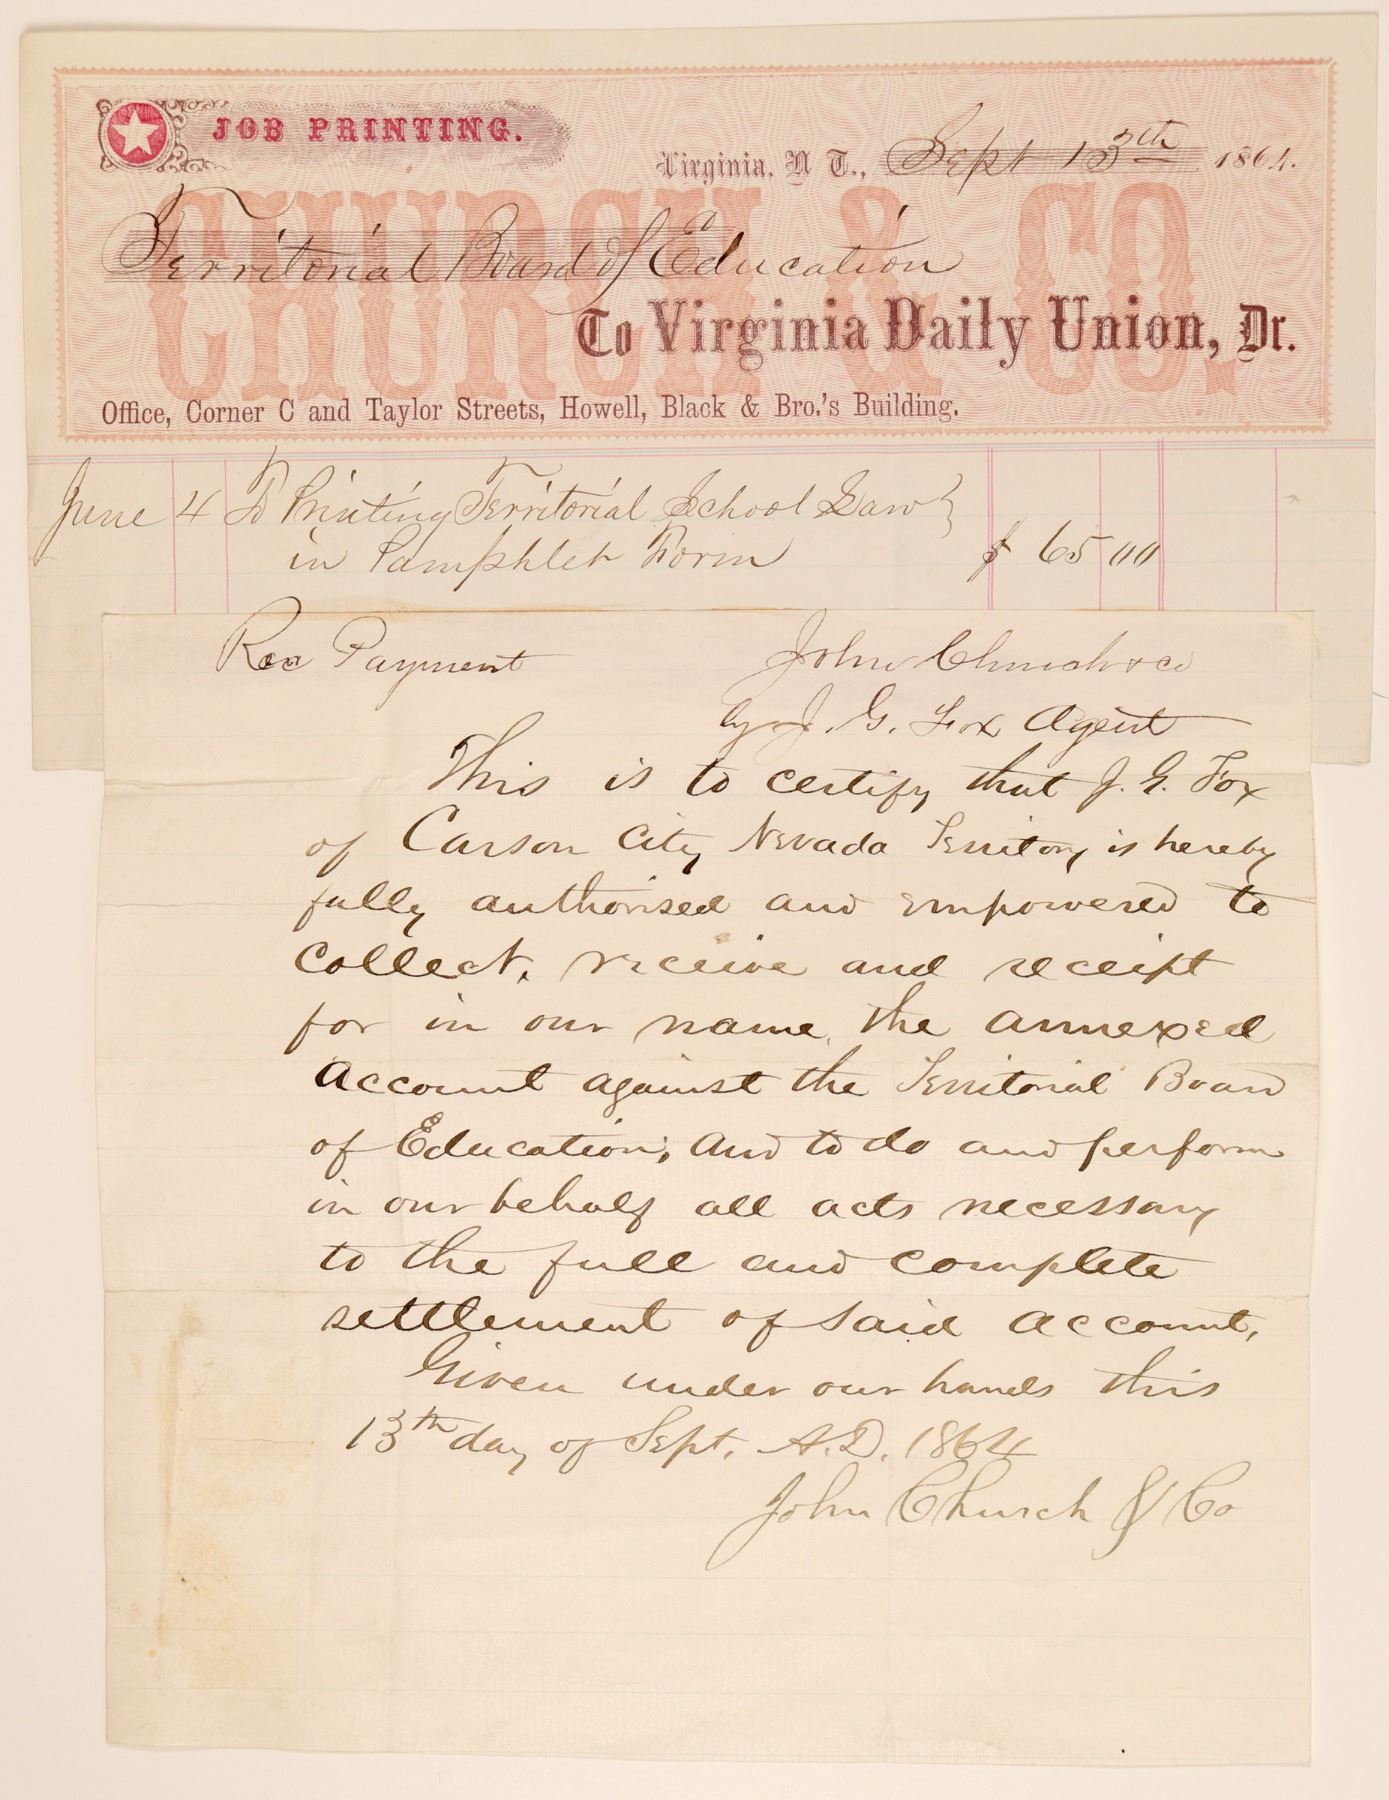 JOB PRINTING.
Virginia, N T., Sept 13th 1864.
CHURCH & CO.
Territorial Board of Education
To Virginia Daily Union, Dr.
Office, Corner C and Taylor Streets, Howell, Black & Bro.'s Building.
June 4 To Printing Territorial School Law }
in Pamphlet Form $ 65 00
Rec Payment John Church & co
by J. G. Fox Agent
This is to certify that J. G. Fox
of Carson City Nevada Territory is hereby
fully authorised and empowered to
collect, receive and receipt
for in our name, the annexed
account against the Territorial Board
of Education, and to do and perform
in our behalf all acts necessary
to the full and complete
settlement of said account,
Given under our hands this
13th day of Sept. A.D. 1864
John Church & Co